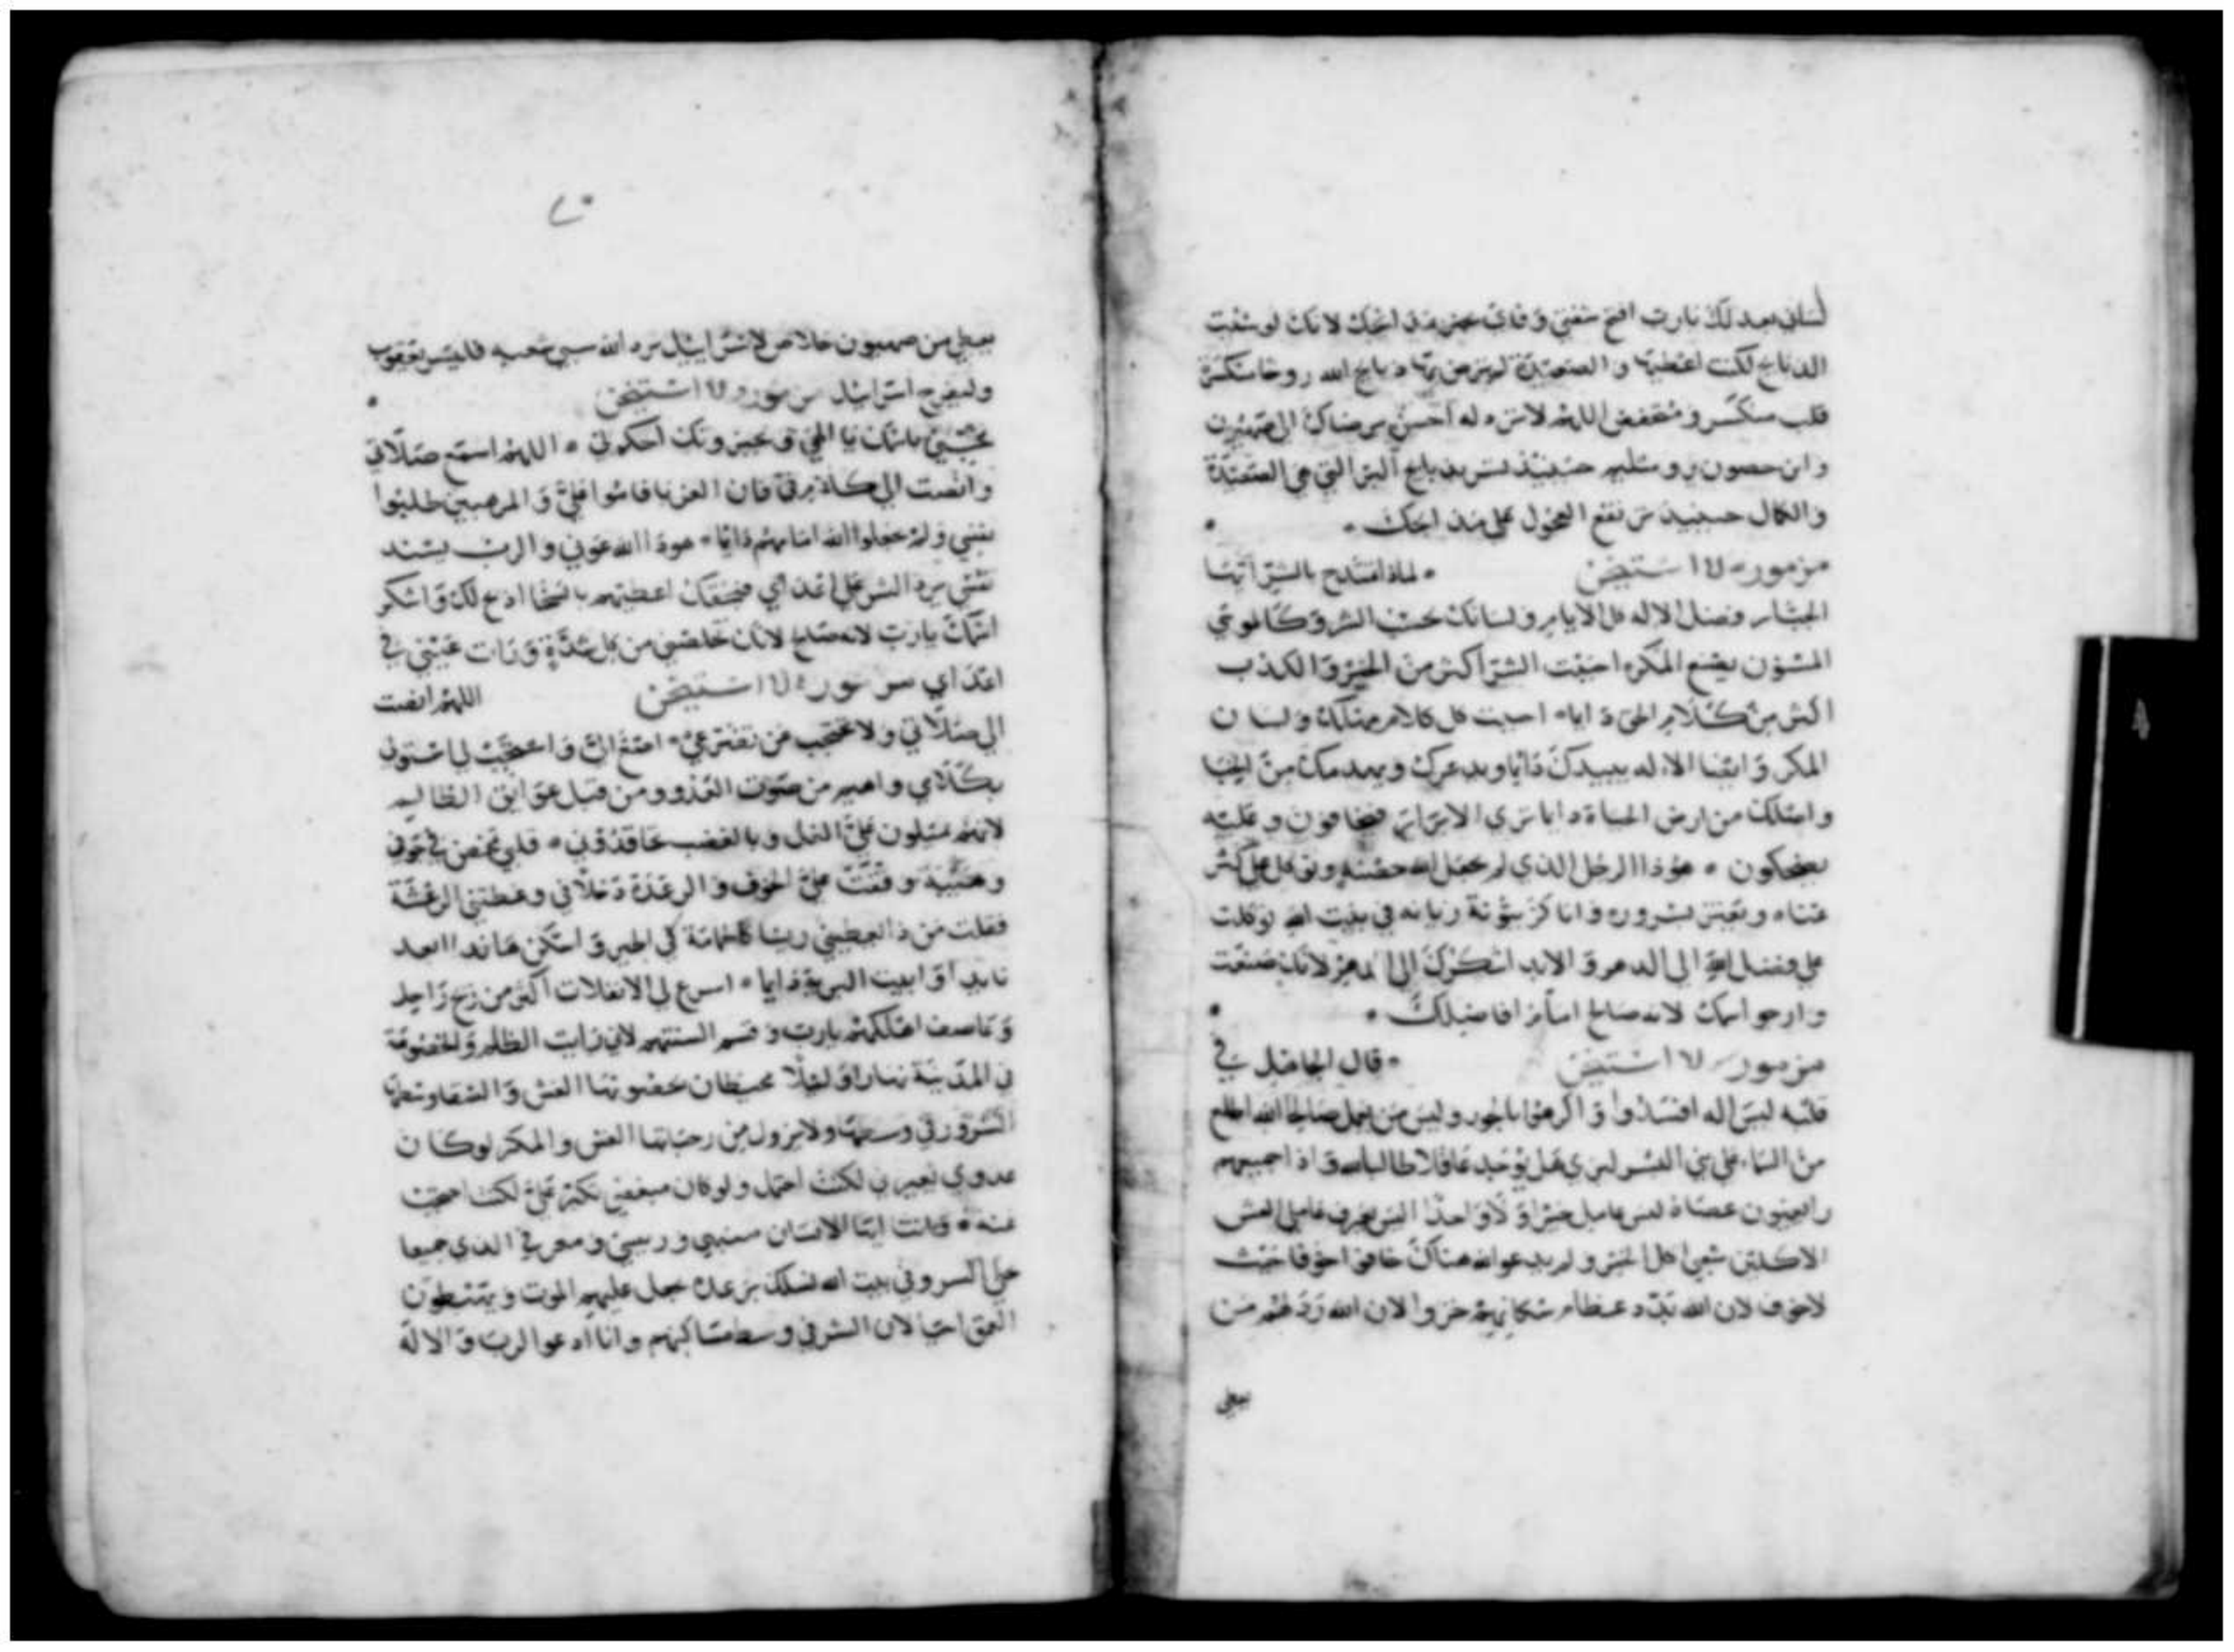 لساني بعدلك يارب افتح شفتي وفاي يخبر مدايحك لانك لو شئت
الذبايح لكنت اعطيها والصعيدة لم ترض بها ذبايح الله روحا منكسرة
قلب منكسر ومتخفض اللهم لا ترذله احسن برضاك الى صهيون
وابن حصون يروسليم حينيذ تسر بذبايح البر التي هي الصعيدة
والكمال حينيذ ترفع العجول على مذابحك
مزمور لا استيخن لماذا تمتدح بالشر ايها
الجبار وفضل الاله كل الايام ولسانك يحب الشر وكالموس
المسنون يصنع المكر احببت الشر اكثر من الخير والكذب
اكثر من كلام الحق دايما احببت كل كلام يهلكك ولسان
المكر وايضا الاله يبيدك دايما ويدعرك ويهدمك من الخبا
واصلك من ارض الحياة دايما ترى الابرار فيخافون وعليه
يضحكون هوذا الرجل الذي لم يجعل الله حصنه وتوكل على كثر
غناه ويعتز بشروره وانا كزيتونة ريانه في بيت الله توكلت
على فضل الله الى الدهر والابد اشكرك الى الدهر لانك صنعت
وارجوا اسمك لانه صالح امام افاضلك
مزمور لا استيخن قال الجاهل في
قلبه ليس اله افسدوا واكرهوا بالجور وليس من يعمل صالحا الله اطلع
من السماء على بني البشر ليرى هل يوجد عاقلا طالبا لله واذا جميعهم
رايغون عصاة ليس عامل خيرا ولا واحدا اليس يعرف عاملي الغش
الاكلين شعبي اكل الخبز ولم يدعوا الله هناك خافوا خوفا حيث
لا خوف لان الله بدد عظام سكانهم خزوا لان الله رذلهم من
يعطي
٧٠
يعطي من صهيون خلاص لاسراييل يرد الله سبي شعبه فليسر يعقوب
وليفرح اسراييل مزمور لا استيخن
نجيني باسمك يا الهي وبجبروتك احكم لي اللهم استمع صلاتي
وانصت الى كلام في فان الغربا قاموا علي والمرهبين طلبوا
نفسي ولم يجعلوا الله امامهم دايما هوذا الله عوني والرب يسند
نفسي يرد الشر على اعداي بحقك اعطبهم بالسخا اذبح لك واشكر
اسمك يارب لانه صالح لانك خلصتني من كل شدة ورات عيني في
اعداي مزمور لا استيخن اللهم انصت
الى صلاتي ولا تحتجب من تضرعي اصغ الي واستجب لي استوي
بكلامي واهيم من صوت العدو ومن قبل عوايق الظاليم
لانهم يميلون علي الغل وبالغضب عاقدوني قلبي تمخض في جوفي
وهيبة وقعت علي الخوف والرعدة دخلاني وغطتني الرعشة
فقلت من ذا يعطيني ريشا كالحمامة كي اطير واسكن هانذا ابعد
نايدا وابيت البرية دايما اسرع لي الانفلات اكثر من ريح راحل
وعاصف اهلكهم يارب وقسم السنتهم لاني رايت الظلم والخصومة
في المدينة نهارا وليلا يحيطان حصونها الغش والشقا وسطها
الشرور في وسطها ولا يزول من رحباتها الغش والمكر لو كان
عدوي يعيرني لكنت احتمل ولو كان مبغضي تكبر علي لكنت احتجب
عنه وانت ايها الانسان مثلي وريسي ومعرفي الذي جميعا
حلي السر وفي بيت الله نسلك برعدة يجعل عليهم الموت ويهبطون
العمق احيا لان الشر في وسط مساكنهم وانا ادعوا الرب والاله